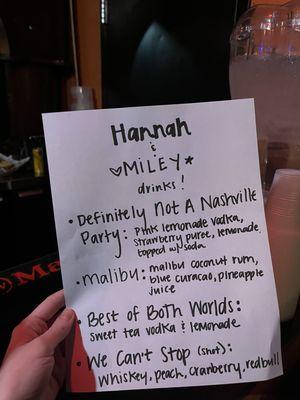 Hannah
&
♡MiLEY*
drinks!
• Definitely Not A Nashville
Party: Pink lemonade vodka,
strawberry puree, lemonade,
topped w/ soda
• malibu: malibu coconut rum,
blue curacao, pineapple
juice
• Best of Both Worlds:
sweet tea vodka & lemonade
• We Can't Stop (shot):
whiskey, peach, cranberry, redbull